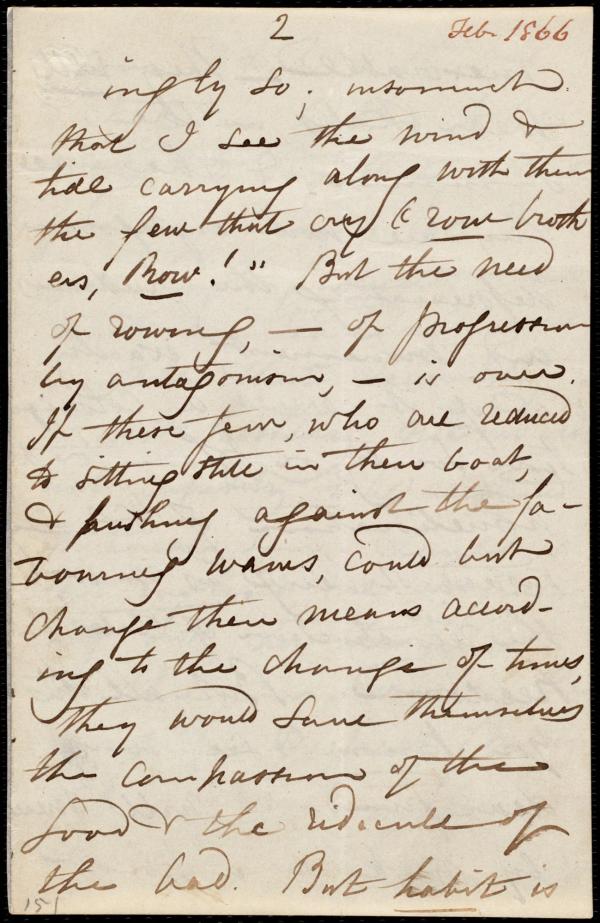 2 Feb. 1866
ingly so; insomuch
that I see the wind &
tide carrying along with them
the few that cry "row broth
ers, Row!" But the need
of rowing, — of progression
by antagonism, — is over.
If these few, who are reduced
to sitting still in their boat,
& pushing against the fa-
vouring waves, could but
change their means accord-
ing to the change of times,
they would save themselves
the compassion of the
Good & the ridicule of
the bad. But habit is
151